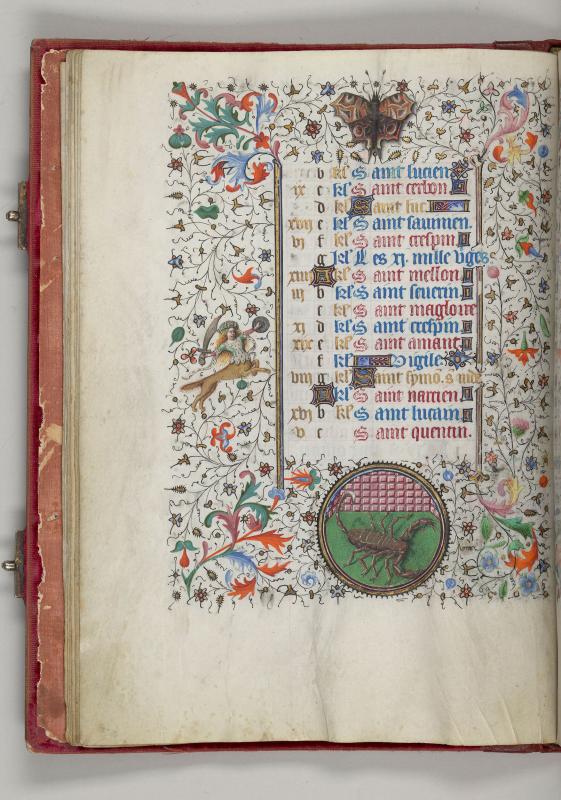 b kl' Saint lucien
ix c kl' Saint cerbon
d kl' Saint luc
xvij e kl' Saint saumien.
vj f kl' Saint crespin
g kl' Les xj. mille vges
xiiij A kl' Saint mellon
iij b kl' Saint seuerin
c kl' Saint magloire
xj d kl' Saint crespin
xix e kl' Saint amant
f kl' Vigile
viij g kl' Saint symō. s. iude
A kl' Saint narcien
xvj b kl' Saint lucain
v c Saint quentin.